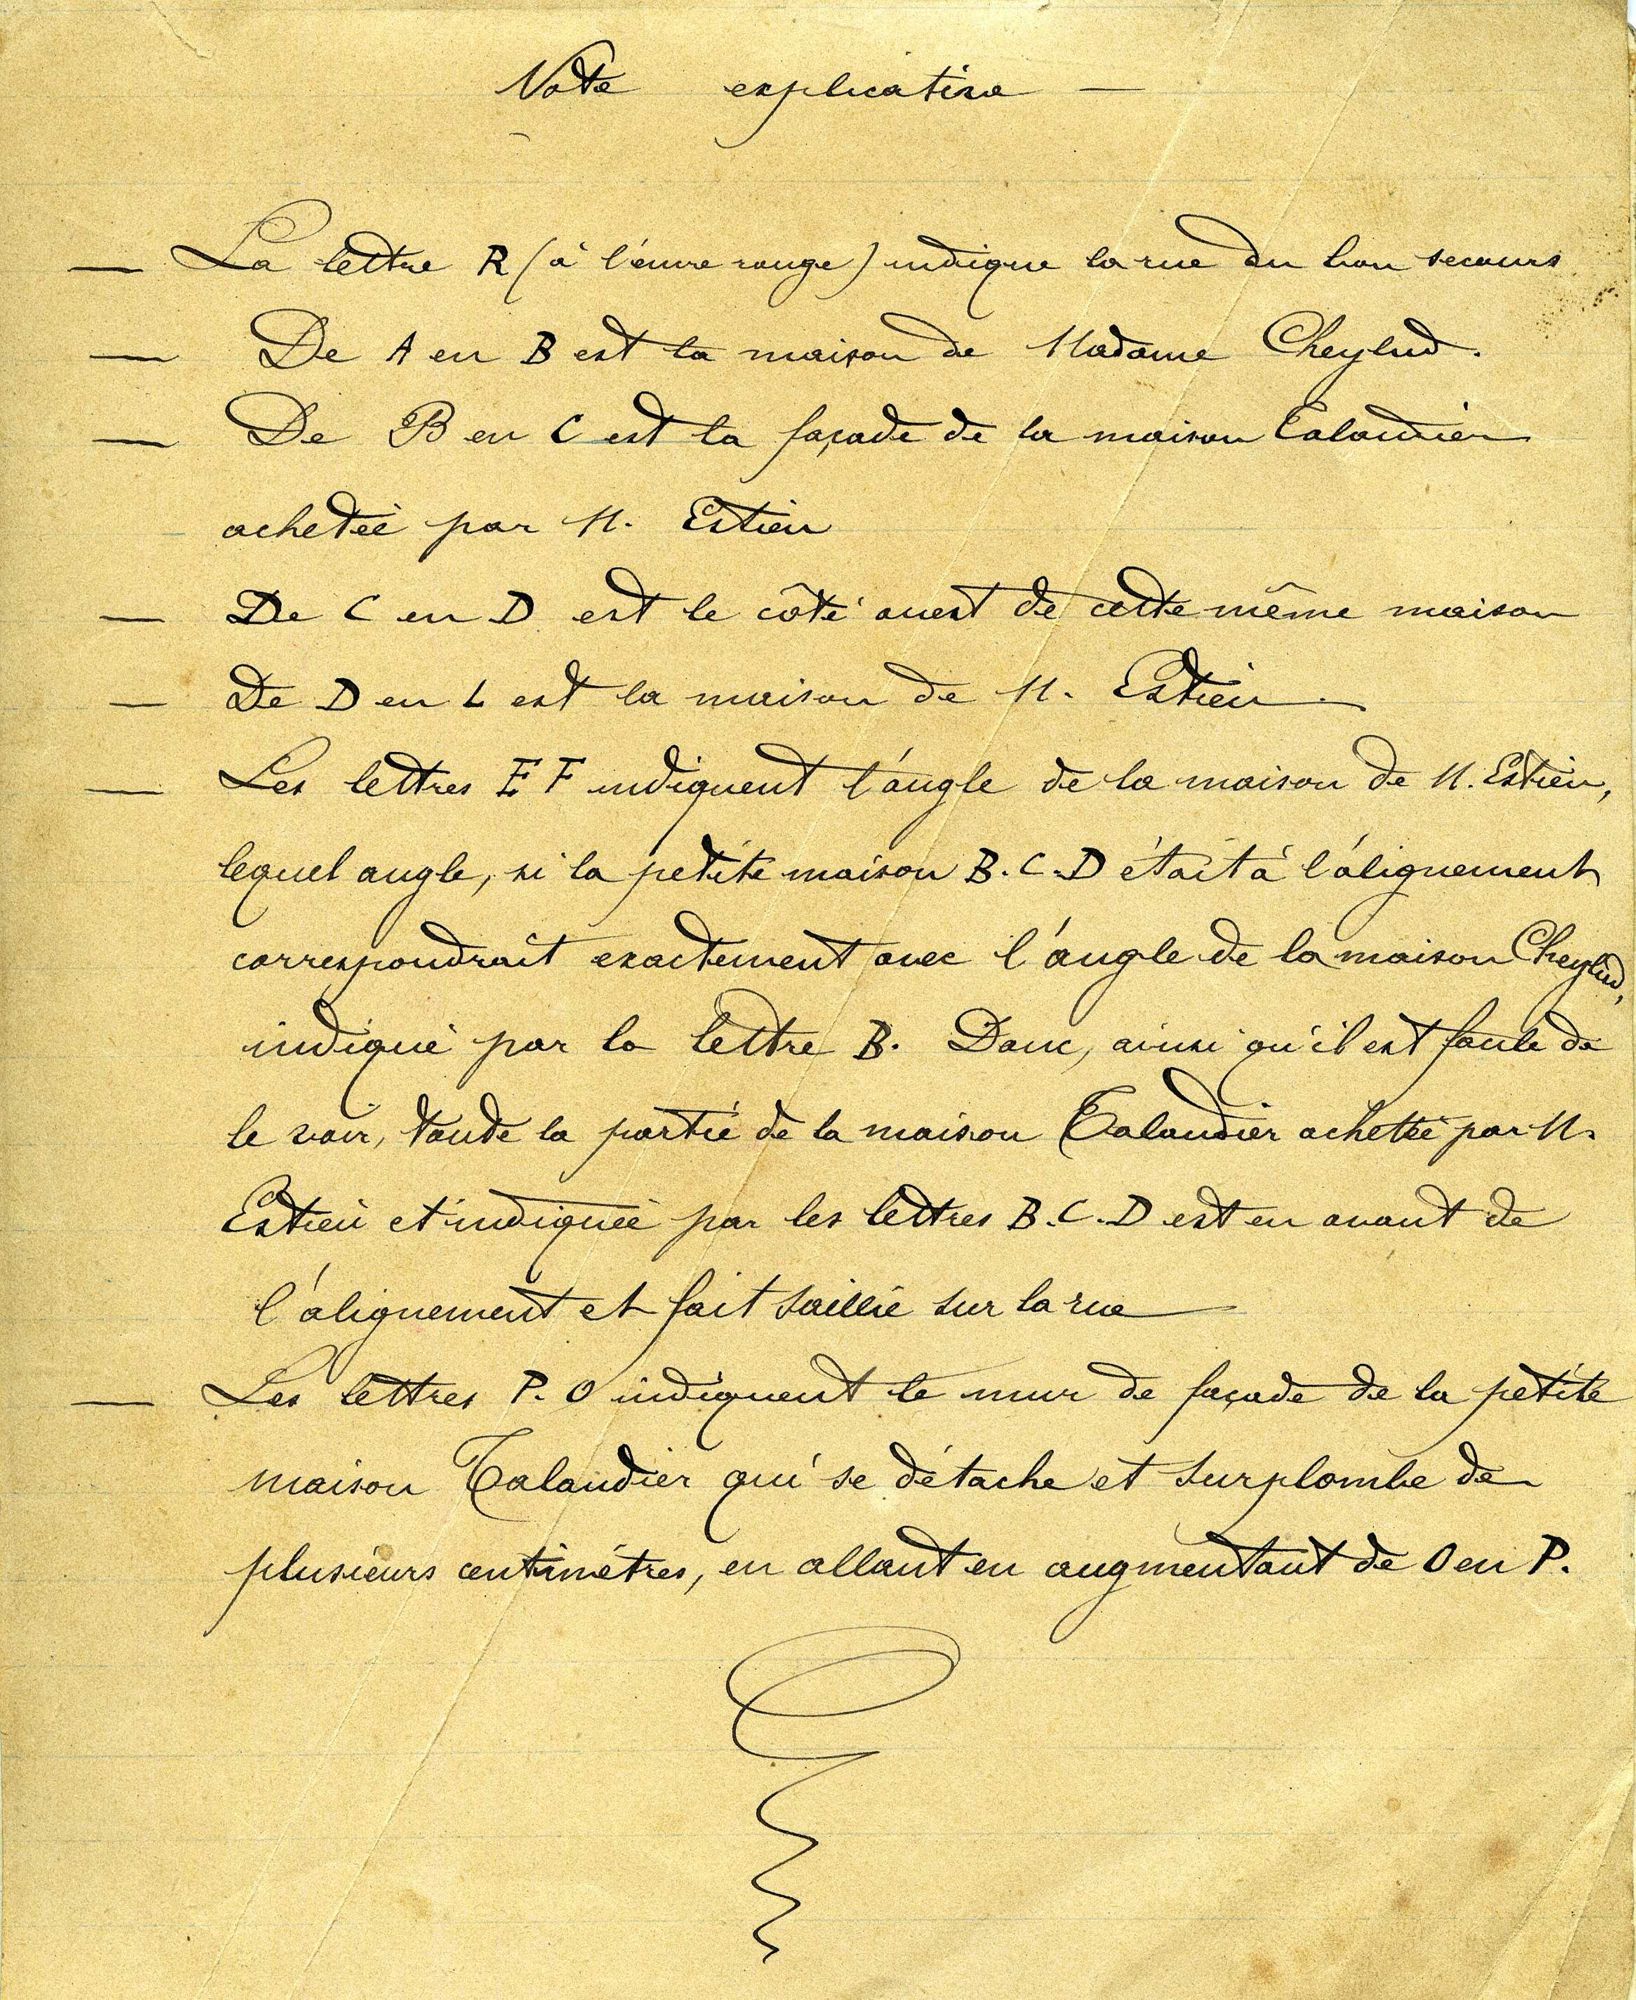 Note explicative —
— La lettre R (à l'encre rouge) indique la rue du bon secours
— De A en B est la maison de Madame Cheylud.
— De B en C est la façade de la maison Talandier
achetée par M. Estieu
— De C en D est le côté ouest de cette même maison
— De D en L est la maison de M. Estieu —
— Les lettres E F indiquent l'angle de la maison de M. Estieu,
lequel angle, si la petite maison B.C.D était à l'alignement
correspondrait exactement avec l'angle de la maison Cheylud,
indiqué par la lettre B. Donc, ainsi qu'il est facile de
le voir, toute la partie de la maison Talandier achetée par M.
Estieu et indiquée par les lettres B.C.D est en avant de
l'alignement et fait saillie sur la rue —
— Les lettres P.O indiquent le mur de façade de la petite
maison Talandier qui se détache et surplombe de
plusieurs centimètres, en allant en augmentant de O en P.